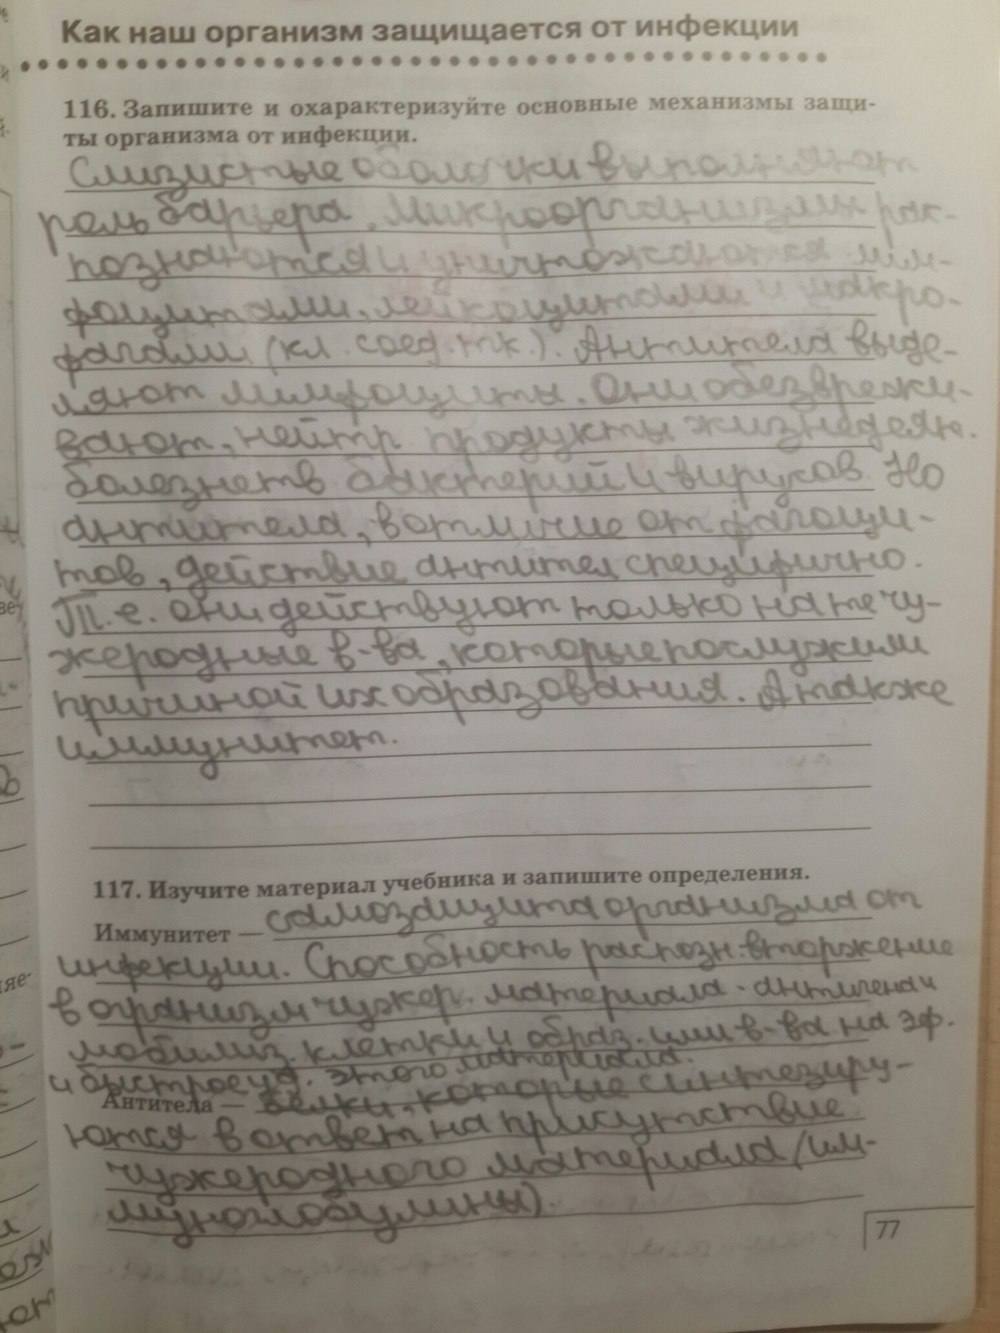 Как наш организм защищается от инфекции
116. Запишите и охарактеризуйте основные механизмы защи-
ты организма от инфекции.
Слизистые оболочки выполняют
роль барьера. Микроорганизмы рас-
познаются и уничтожаются лим-
фоцитами, лейкоцитами и макро-
фагами (кл. соед. тк.). Антитела выде-
ляют лимфоциты. Они обезврежи-
вают, нейтр. продукты жизнедеян.
болезнетв бактерий и вирусов. Но
антитела, в отличие от фагоци-
тов, действие антител специфично.
Т.е. они действуют только на те чу-
жеродные в-ва, которые послужили
причиной их образования. А также
иммунитет.
117. Изучите материал учебника и запишите определения.
Иммунитет — самозащита организма от
инфекции. Способность распозн. вторжение
в огранизм чужер. материала - антигена и
мобилиз. клетки и образ. ими в-ва на эф.
и быстрое уд. этого материала.
Антитела — белки, которые синтезиру-
ются в ответ на присутствие
чужеродного материала (им-
муноглобулины).
77